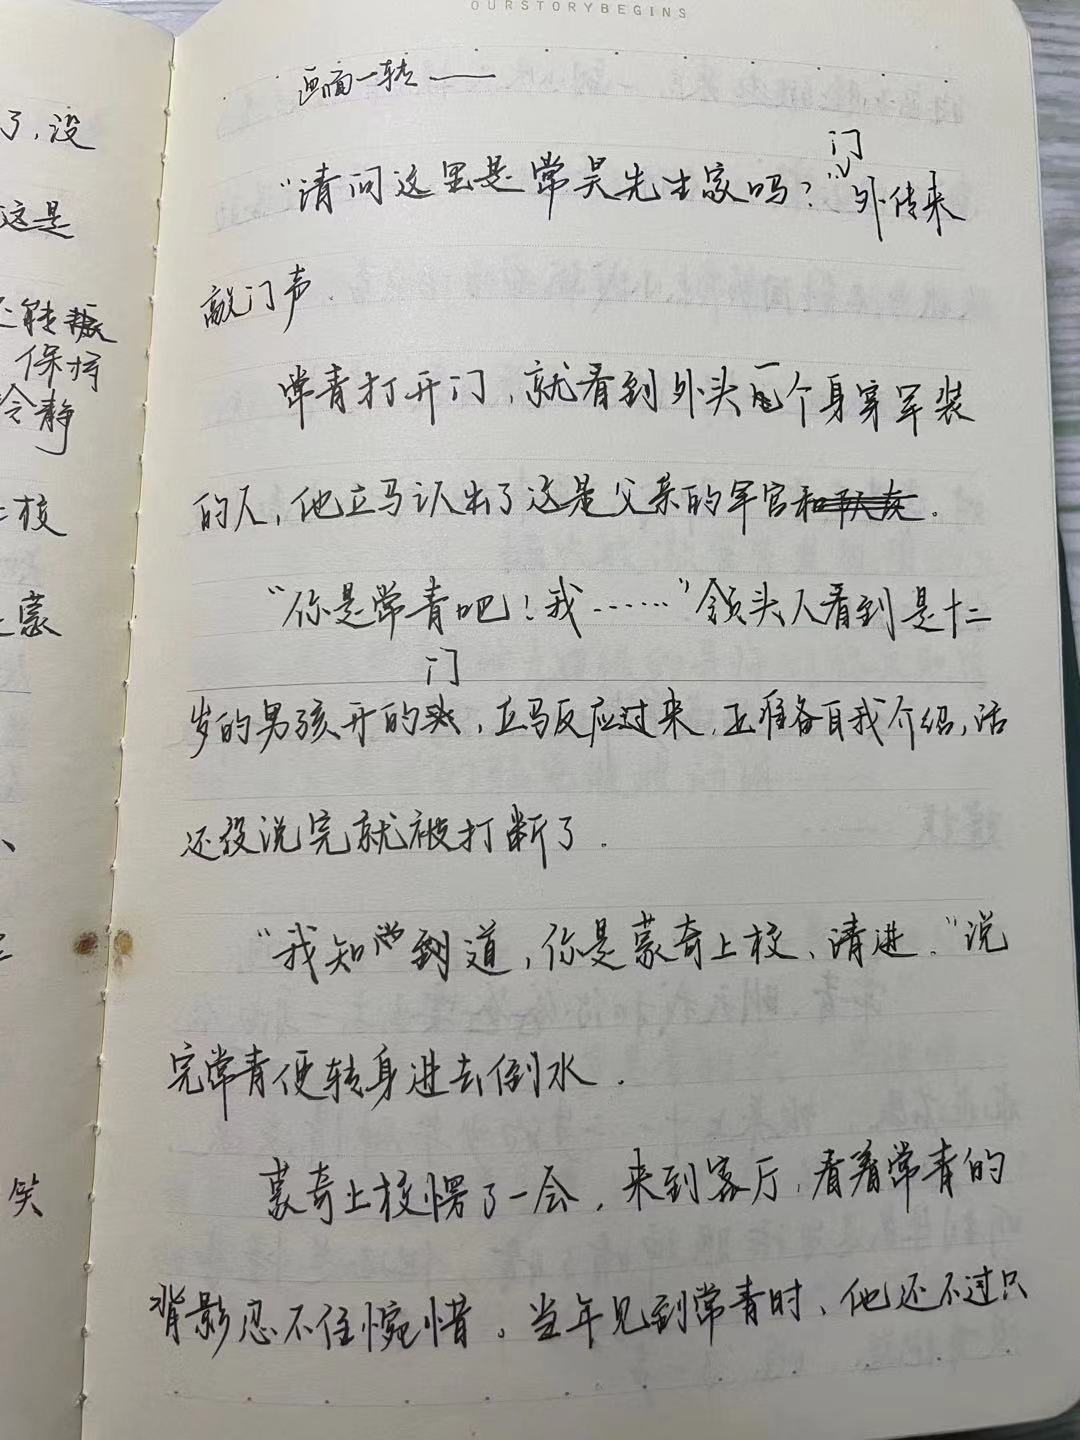 OURSTORYBEGINS
画面一转——
"请问这里是常昊先生家吗？"门外传来
敲门声.
常青打开门，就看到外头几个身穿军装
的人，他立马认出了这是父亲的军官.
"你是常青吧！我……"领头人看到是十二
岁的男孩开的门，立马反应过来，正准备自我介绍，话
还没说完就被打断了.
"我知道，你是蒙奇上校、请进."说
完常青便转身进去倒水.
蒙奇上校愣了一会，来到客厅，看着常青的
背影忍不住惋惜。当年见到常青时、他还不过只
了，没
这是
能振
保持
冷静
上校
蒙
笑